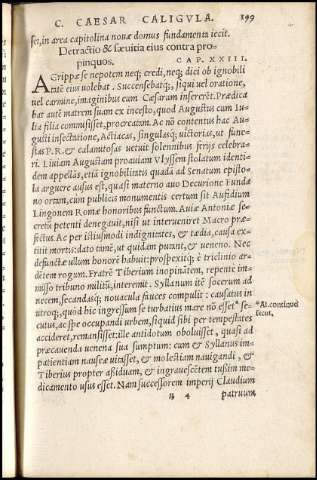 C. CAESAR CALIGVLA. 199
set, in area capitolina nouæ domus fundamenta iecit.
Detractio & sæuitia eius contra pro-
pinquos. CAP. XXIII.
AGrippæ se nepotem neq; credi, neq; dici ob ignobili
tatē eius uolebat. Succensebatq;, siqui uel oratione,
uel carmine, imaginibus eum Cæsarum insererēt. Prædica
bat autē matrem suam ex incesto, quod Augustus cum Iu-
lia filia commisisset, procreatam. Ac nō contentus hac Au-
gusti insectatione, Actiacas, Siculasq; uictorias, ut fune-
stas P.R. & calamitosas uetuit solennibus ferijs celebra-
ri. Liuiam Augustam proauiam Vlyssem stolatum identi-
dem appellās, etiā ignobilitatis quadā ad Senatum episto-
la arguere ausus est, quasi materno auo Decurione Funda
no ortam, cum publicis monumentis certum sit Aufidium
Lingonem Romæ honoribus functum. Auiæ Antoniæ se-
cretū petenti denegauit, nisi ut interueniret Macro præ-
fectus. Ac per istiusmodi indignitates, & tædia, causa ex-
titit mortis: dato tamē, ut quidam putāt, & ueneno. Nec
defunctæ ullum honorē habuit: prospexitq; è triclinio ar-
dētem rogum. Fratrē Tiberium inopinātem, repente im-
misso tribuno militū, interemit. Syllanum itē socerum ad
necem, secandasq; nouacula fauces compulit: causatus in
utroq;, quòd hic ingressum se turbatius mare nō esset* se-
cutus, ac spe occupandi urbem, siquid sibi per tempestates
accideret, remansisset: ille antidotum oboluisset, quasi ad
præcauenda uenena sua sumptum: cum & Syllanus im-
patientiam nauseæ uitasset, & molestiam nauigandi, &
Tiberius propter assiduam, & ingrauescētem tussim me-
dicamento usus esset. Nam successorem imperij Claudium
patruum